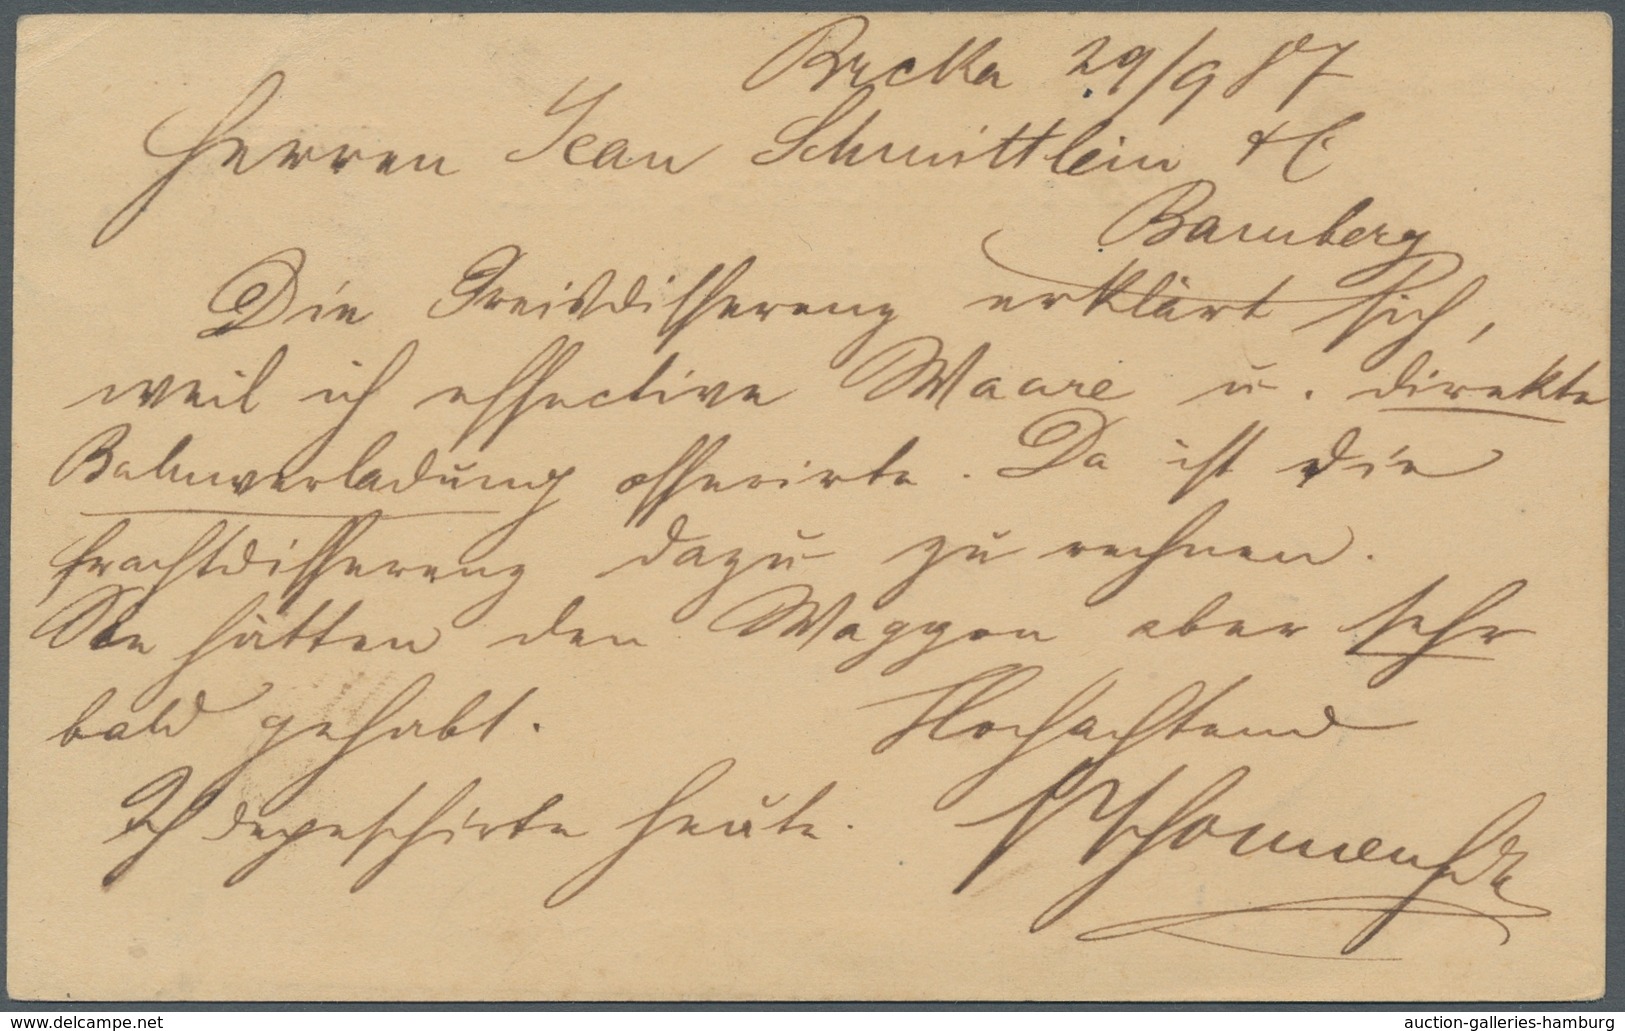 Brcka 29/9 87
Herren Jean Schmittlein & C
Bamberg
Die Preisdifferenz erklärt sich,
weil ich effective Waare u. direkte
Bahnverladung offerirte. Da ist die
Frachtdifferenz dazu zu rechnen.
Sie hätten den Waggon aber sehr
bald gehabt. Hochachtend
Ich depeschirte heute.
www.delcampe.net
auction-galleries-hamburg